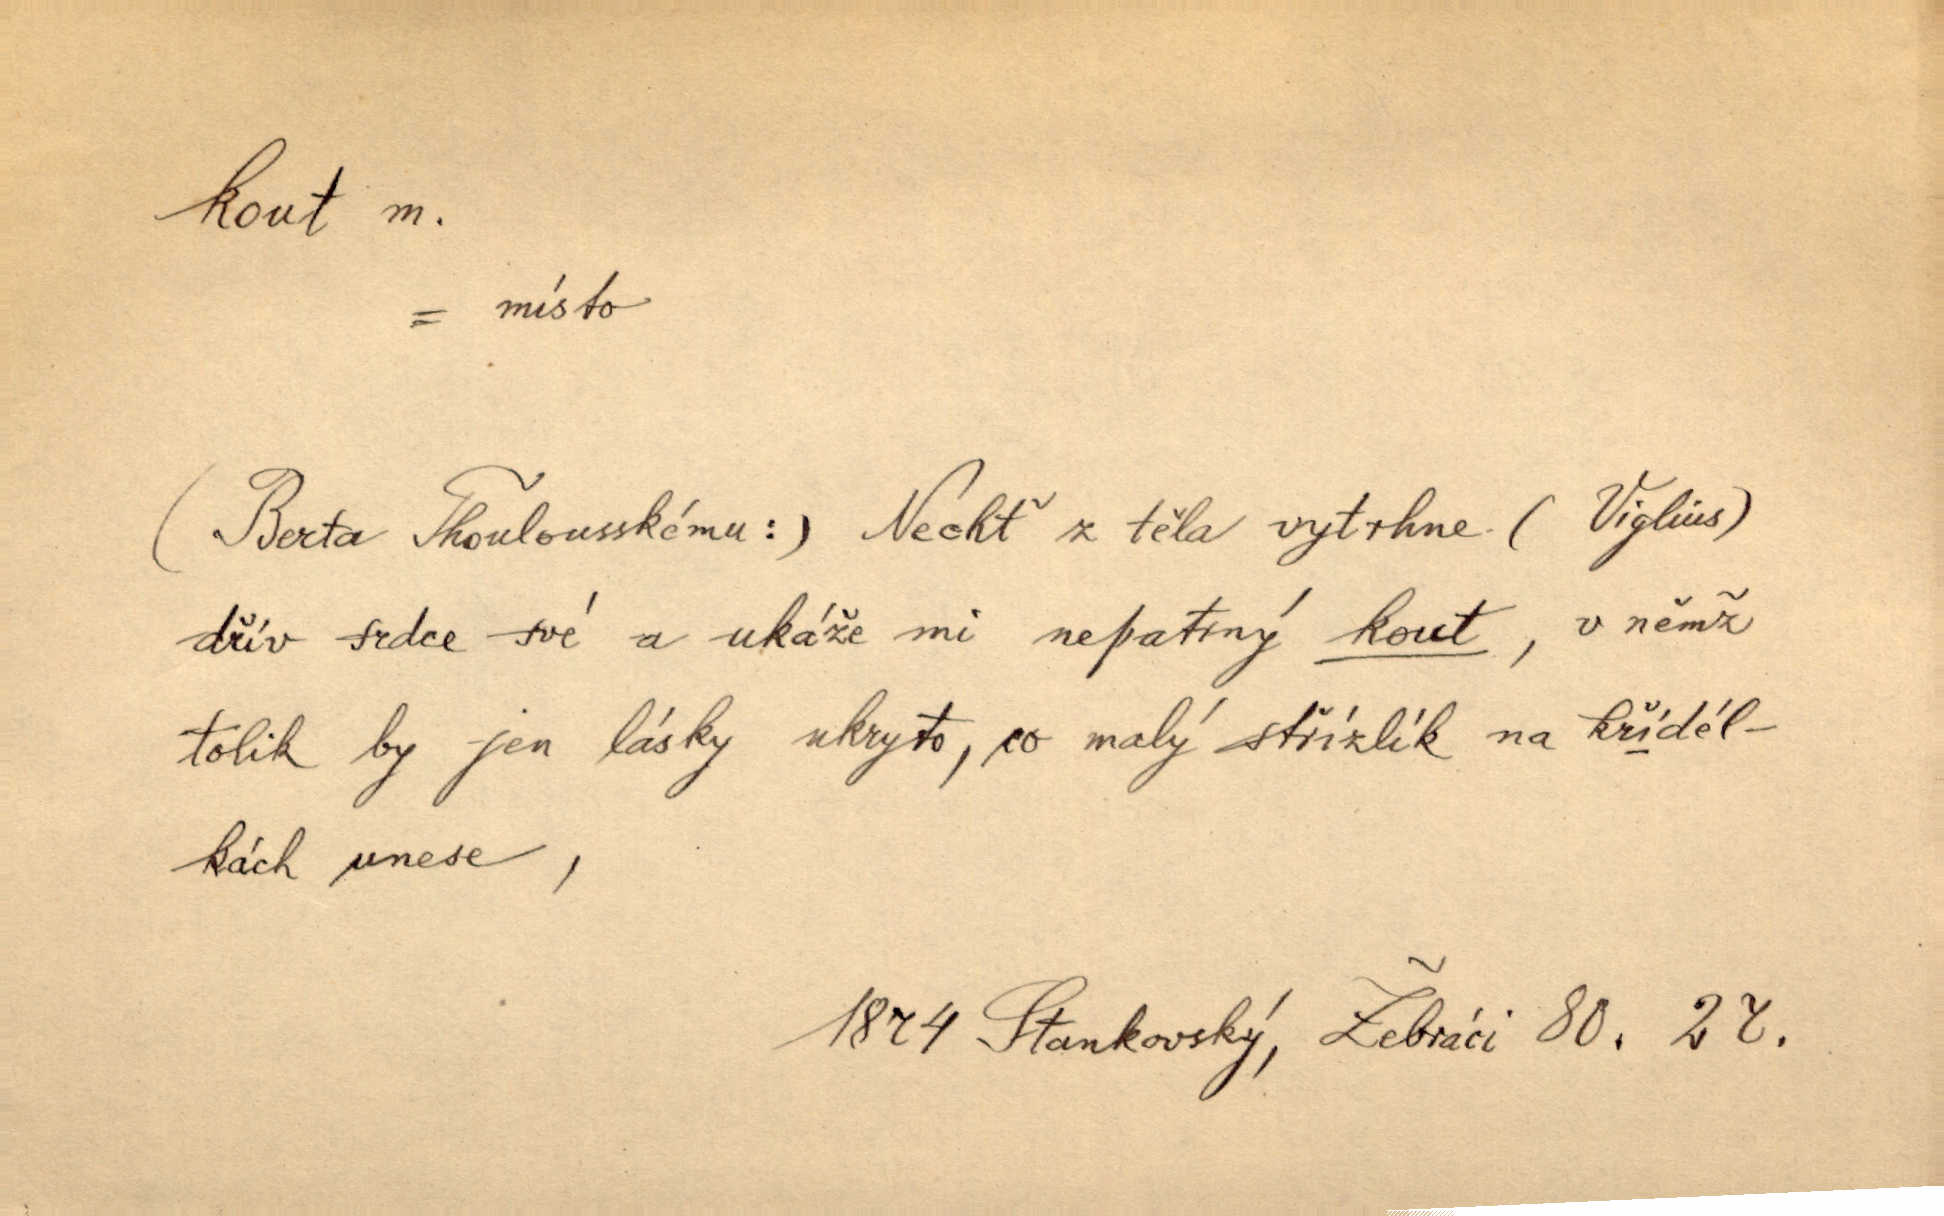 kout m.
= místo
(Berta Thoulousskému:) Nechť z těla vytrhne (Viglius)
dřív srdce své a ukáže mi nepatrný kout, v němž
tolik by jen lásky ukryto, co malý střízlík na křídél-
kách unese,
1874 Stankovský, Žebráci 80. 27.